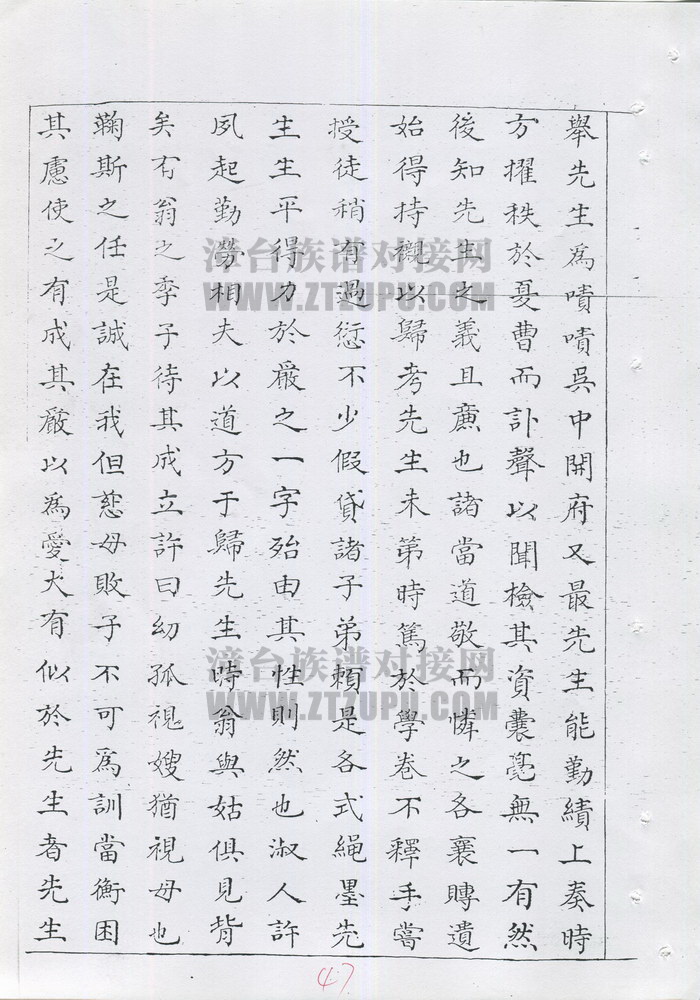 舉先生爲嘖嘖吳中開府又最先生能勤績上奏時
方擢秩於憂曹而訃聲以聞檢其資囊毫無一有然
後知先生之義且廉也諸當道敬而憐之各襄賻遺
始得持櫬以歸考先生未第時篤於學卷不釋手嘗
授徒稍有過愆不少假貸諸子弟頼是各式繩墨先
生生平得力於嚴之一字殆由其性則然也淑人許
夙起勤勞相夫以道方于歸先生時翁與姑俱見背
矣有翁之季子待其成立許曰幼孤視嫂猶視母也
鞠斯之任是誠在我但慈母敗子不可爲訓當衡困
其慮使之有成其嚴以爲愛大有似於先生者先生
漳台族谱对接网
WWW.ZTZUPU.COM
漳台族谱对接网
WWW.ZTZUPU.COM
47